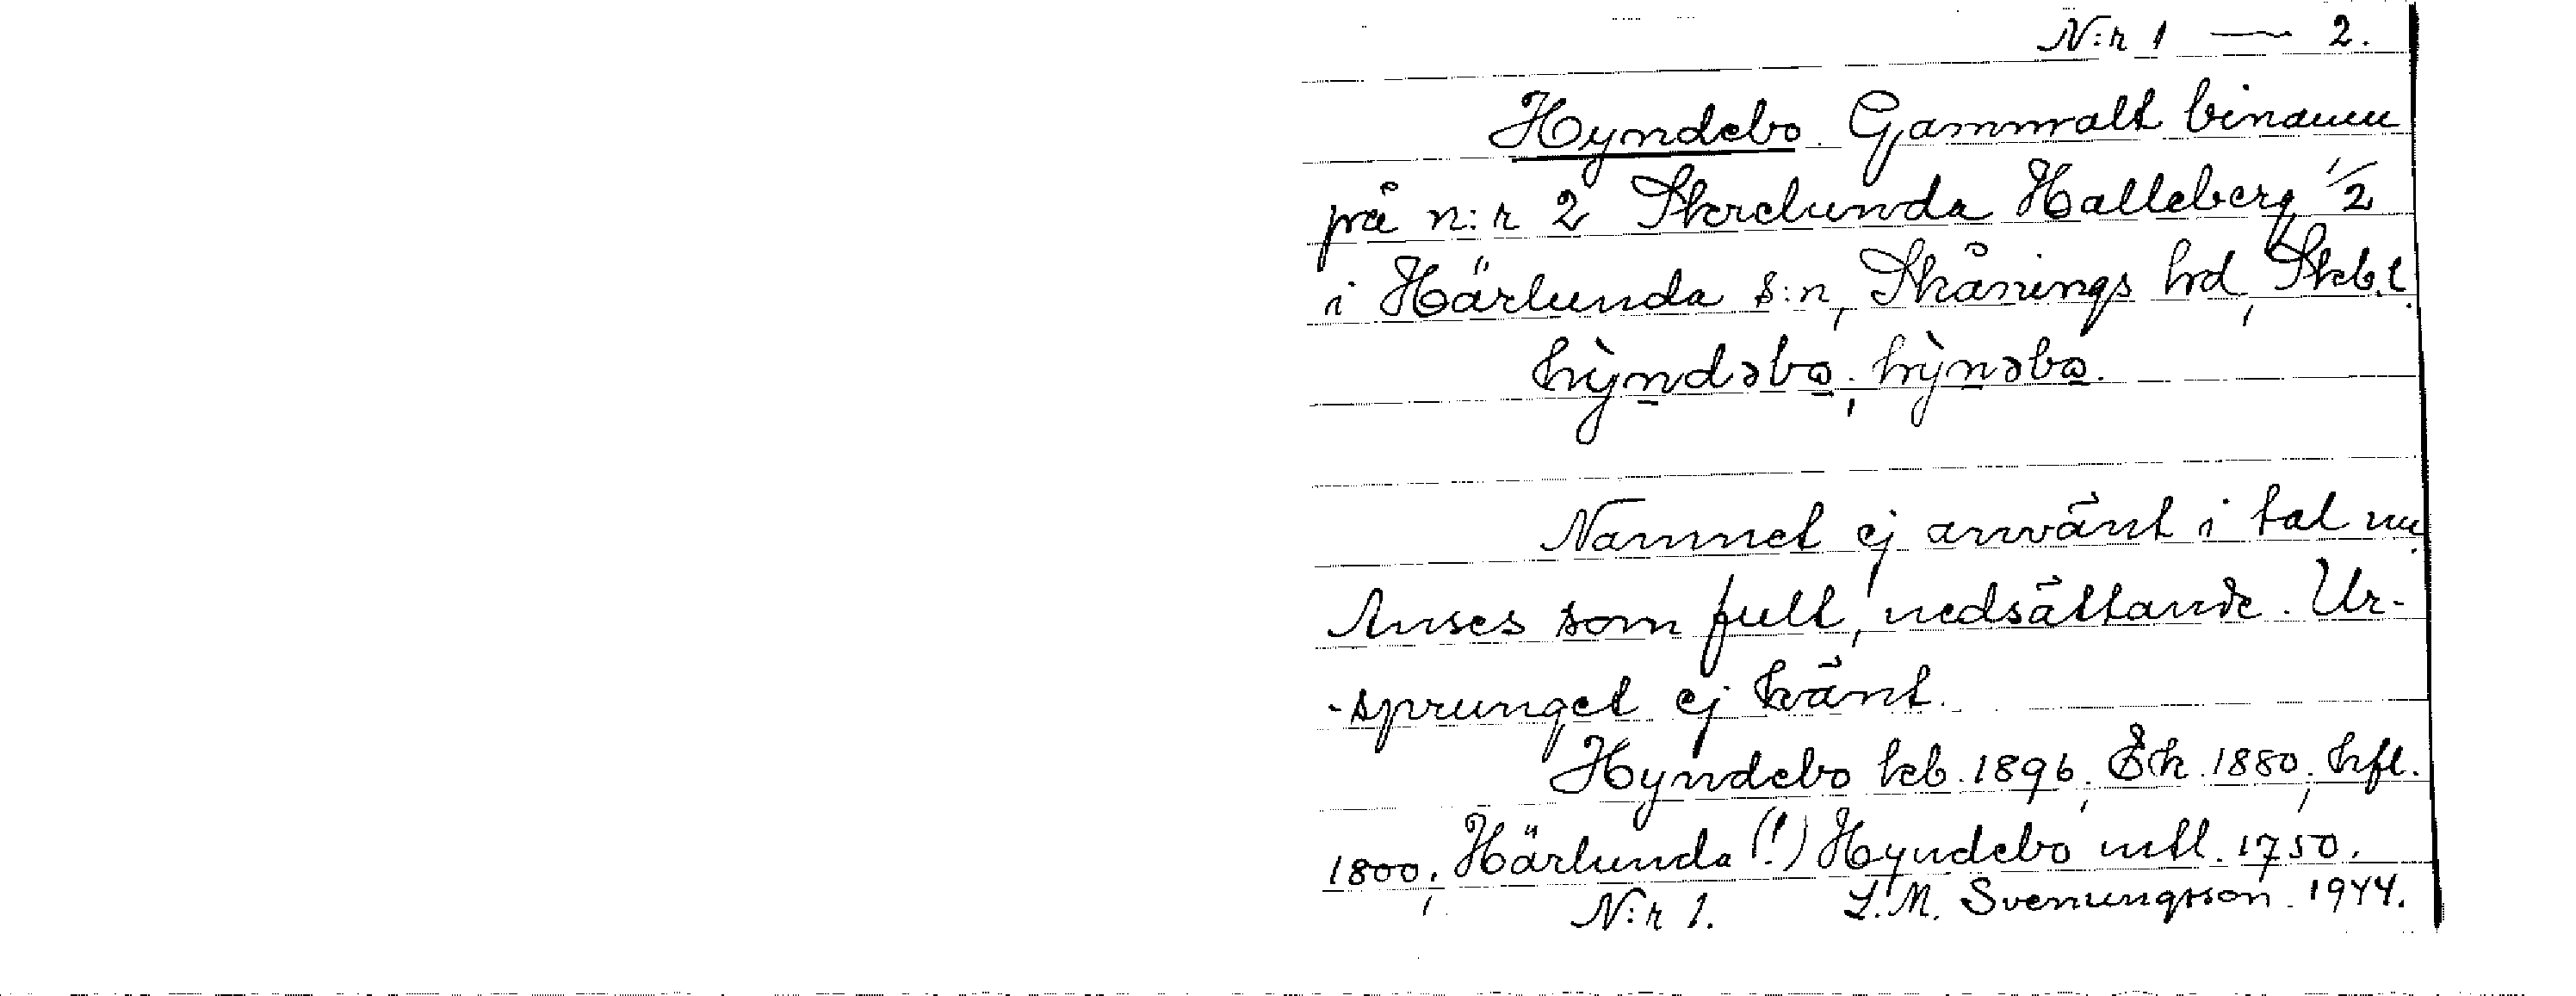 N:r 1 — 2.
Hyndebo. Gammalt binamn
på n:r 2 Skrelunda Halleberg 1/2
i Härlunda s:n, Skånings hd, Skb.l.
hỳndəbo; hỳnəbo.
Namnet ej använt i tal nu.
Anses som fult, nedsättande. Ur-
-sprunget ej känt.
Hyndebo kb. 1896; Ek. 1880; hfl.
1800; Härlunda (!) Hyndebo mtl. 1750.
N:r 1. L.M. Svenungsson. 1944.